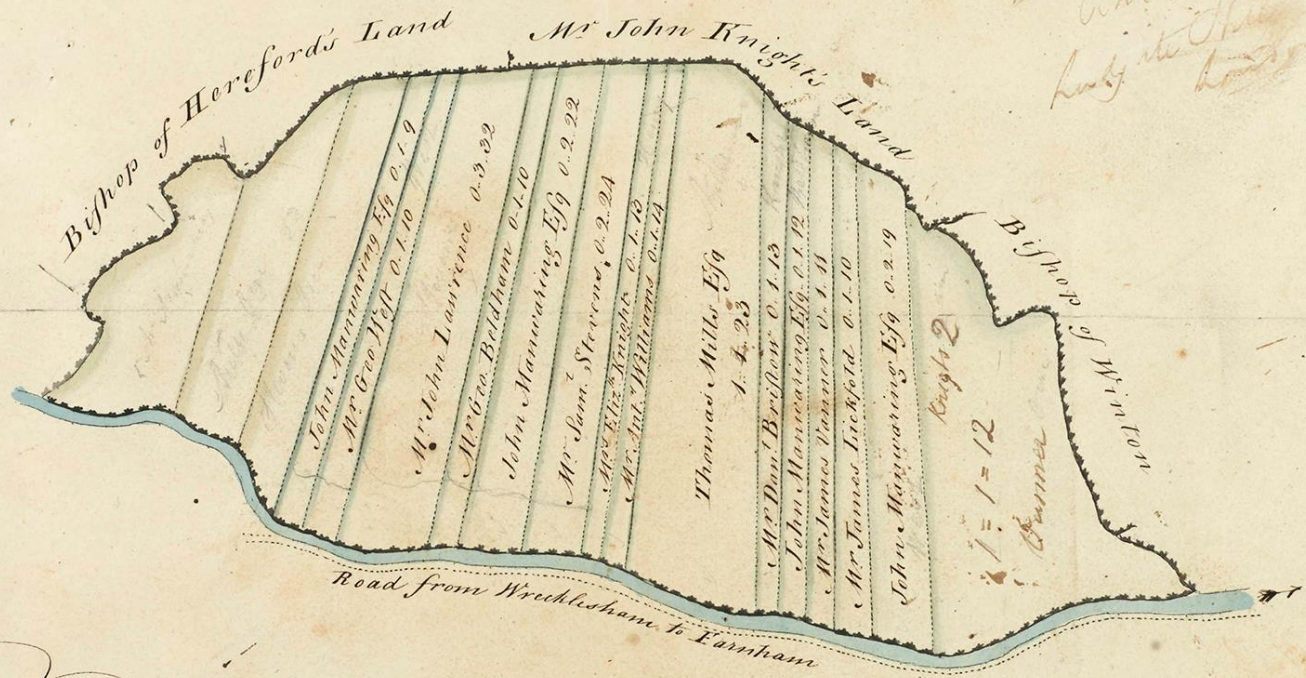 Bishop of Hereford's Land
Mr John Knight's Land
Bishop of Winton
John Manwaring Esq 0..1..9
Mr Geo West 0..1..10
Mr John Lawrence 0..3..32
Mr Geo. Beldham 0..1..10
John Manwaring Esq 0..2..22
Mr Sam.l Stevens 0..2..24
Mrs Eliz.th Knight 0..1..13
Mr Ant.y Williams 0..1..14
Thomas Mills Esq
1..1..23
Mr Dan.l Bristow 0..1..13
John Manwaring Esq. 0..1..12
Mr James Vanner 0..1..11
Mr James Lickfold 0..1..10
John Manwaring Esq 0..2..19
1=1=12
Road from Wrecklesham to Farnham